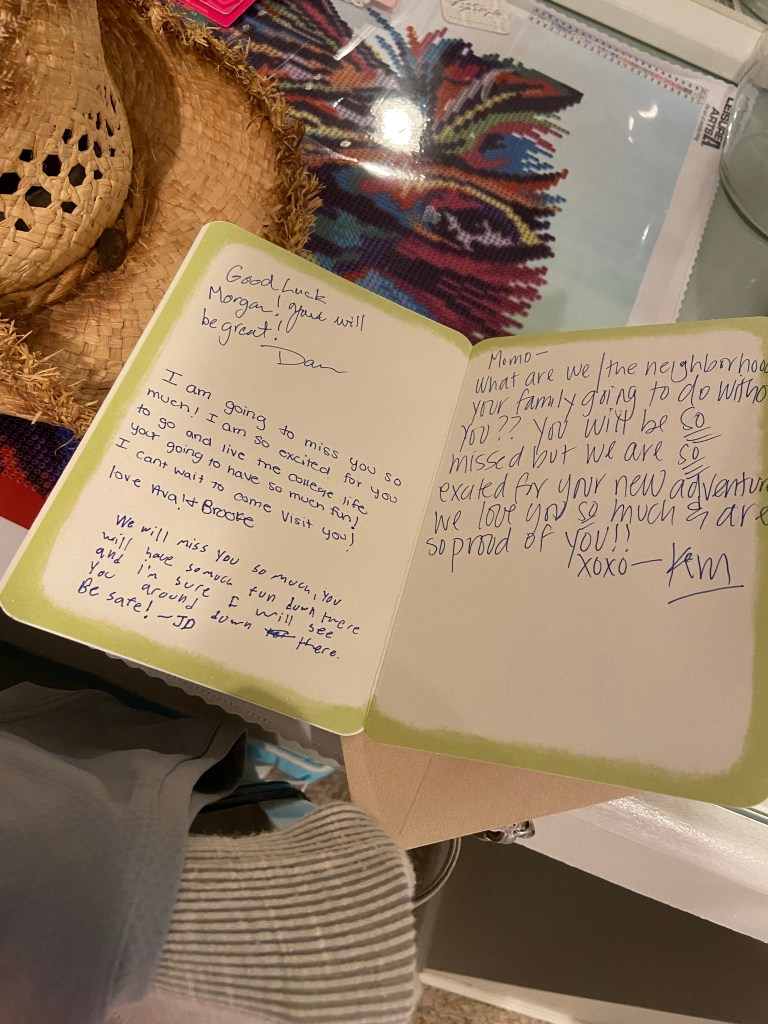 Good Luck
Morgan! You will
be great!
Dan
I am going to miss you so
much! I am so excited for you
to go and live the college life
your going to have so much fun!
I cant wait to come visit you!
love Ava + Brooke
We will miss you so much, you
will have so much fun down there
and i'm sure I will see
you around down there.
Be safe! ~JD
Momo-
What are we/the neighborhood
your family going to do witho
you?? You will be so
missed but we are so
excited for your new adventur
we love you so much & are
so proud of you!!
xoxo- Kem
LEISURE
ARTS